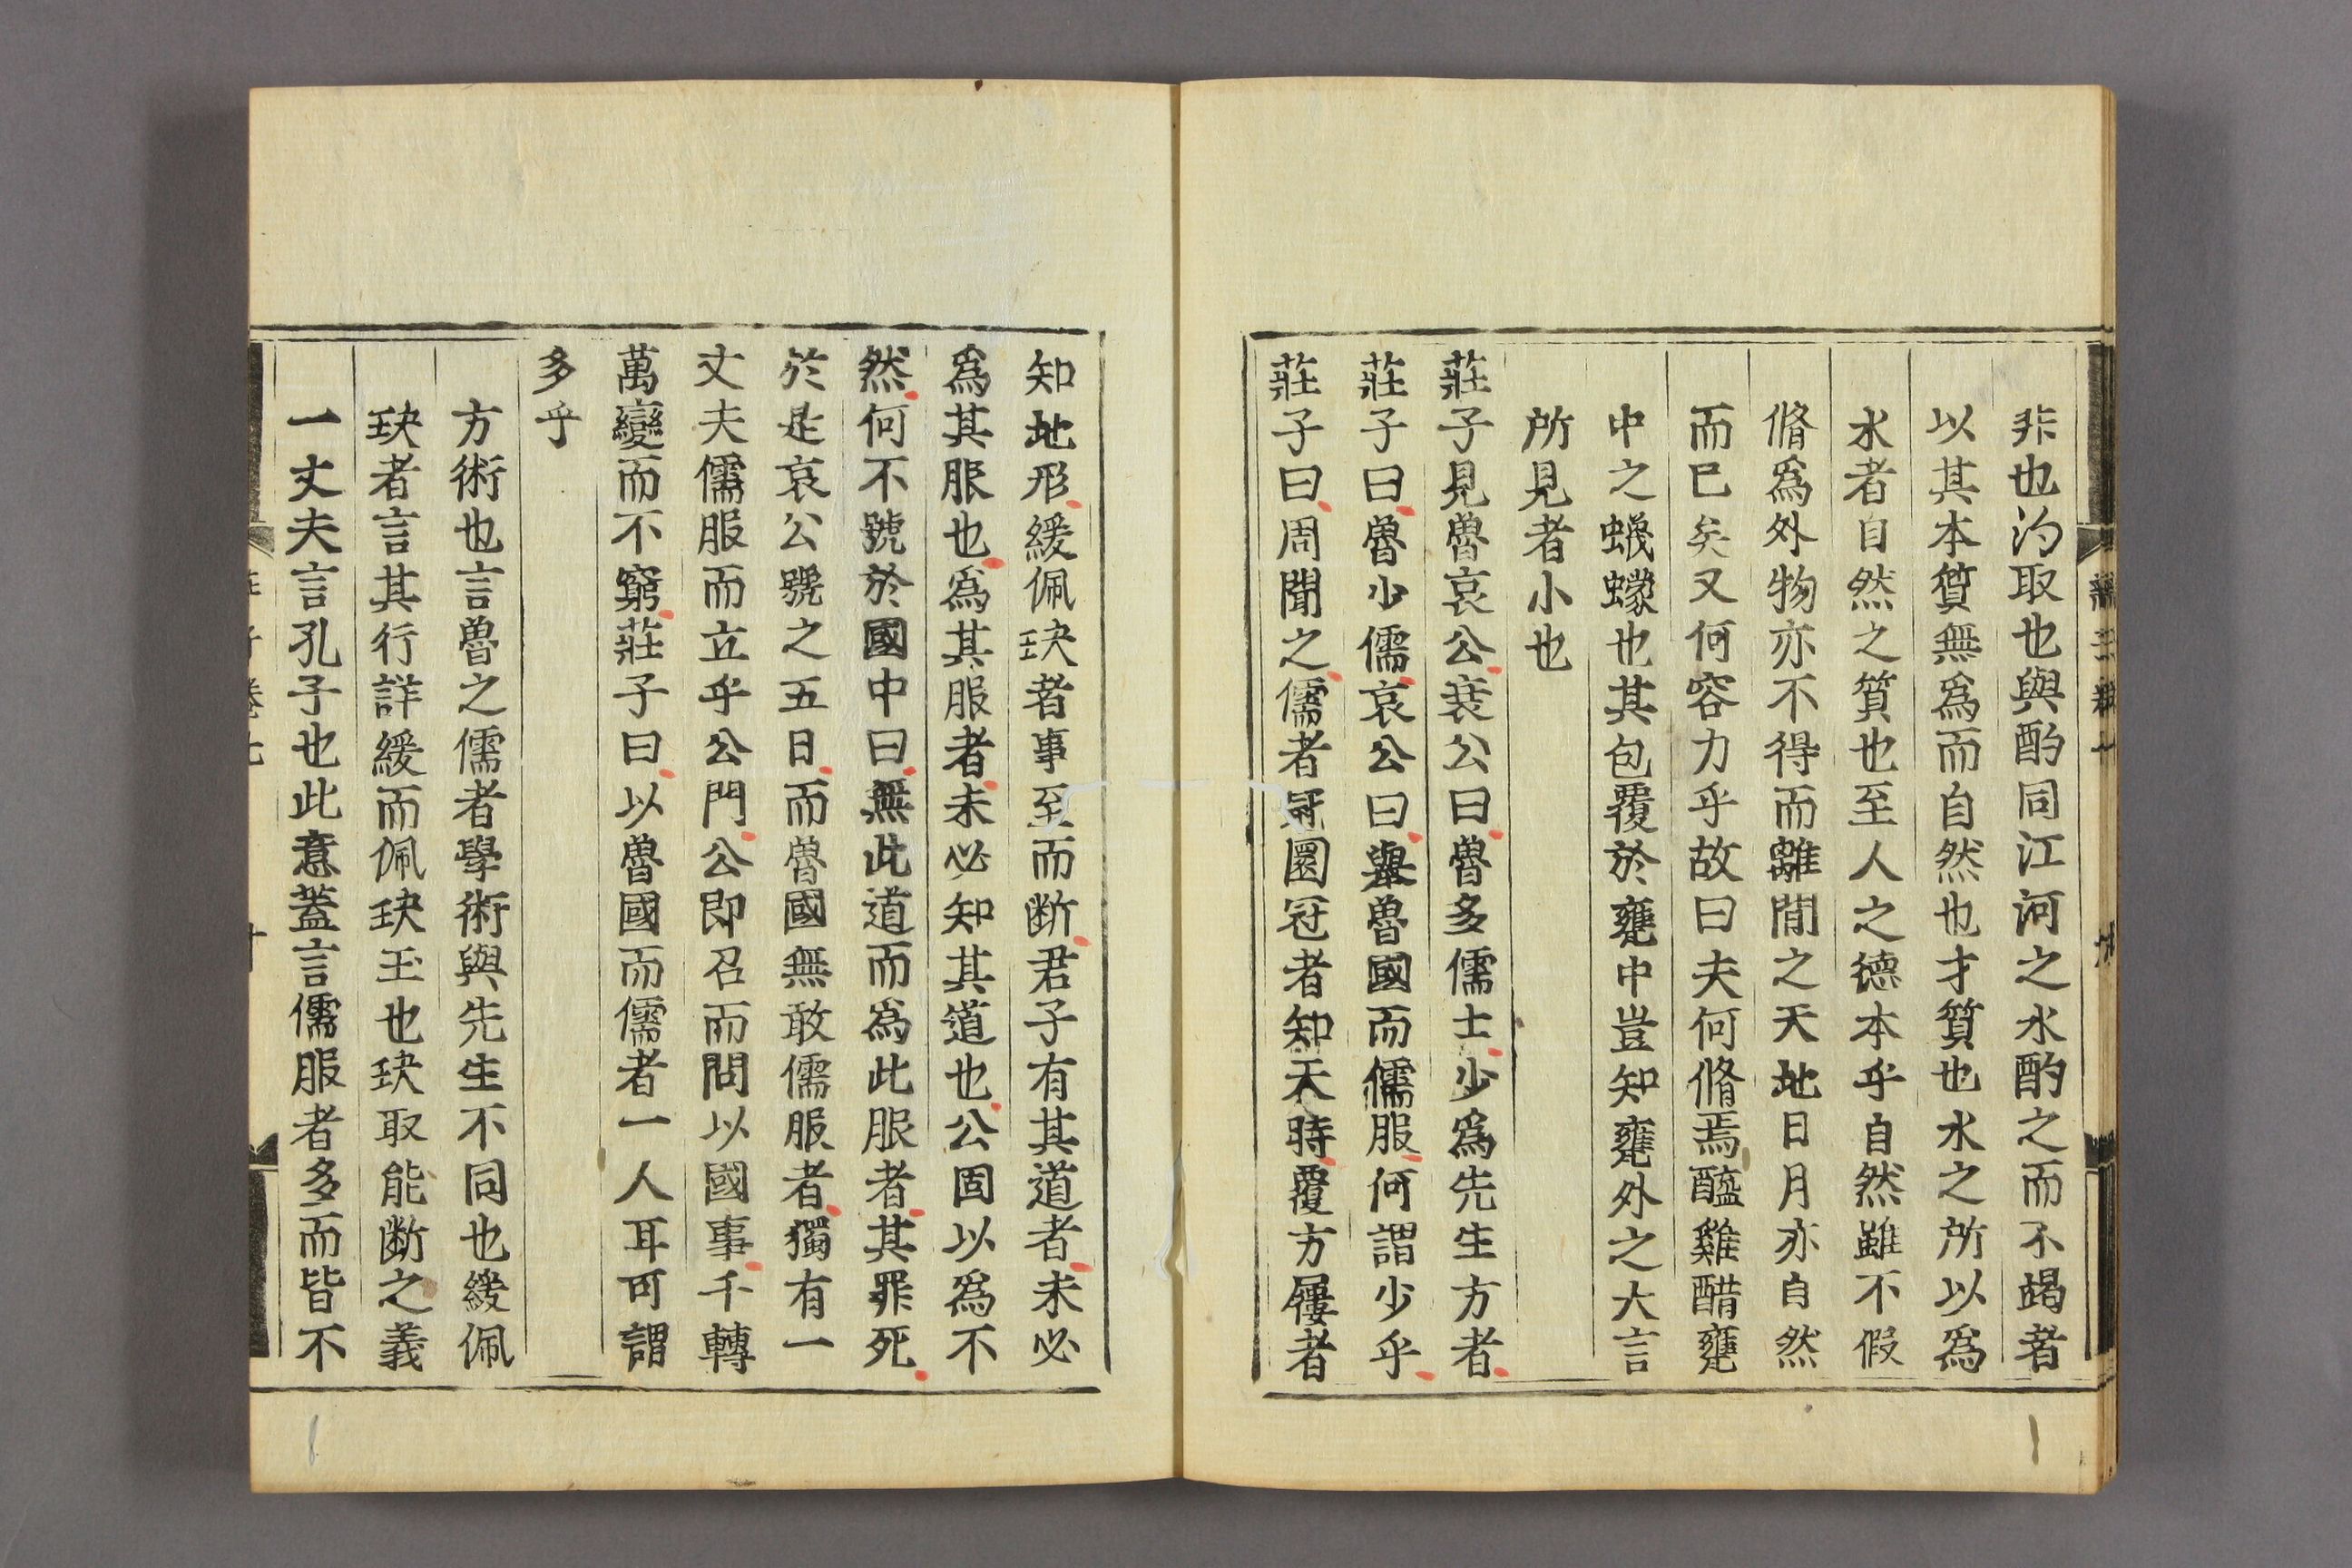 非也汋取也與酌同江河之水酌之而不竭者
以其本質無爲而自然也才質也水之所以爲
水者自然之質也至人之德本乎自然雖不假
脩爲外物亦不得而離間之天地日月亦自然
而已矣又何容力乎故曰夫何脩焉醯雞醋甕
中之蠛蠓也其包覆於甕中豈知甕外之大言
所見者小也
莊子見魯哀公哀公曰魯多儒士少爲先生方者
莊子曰魯少儒哀公曰舉魯國而儒服何謂少乎
莊子曰周聞之儒者冠圜冠者知天時覆方屨者
知地形緩佩玦者事至而斷君子有其道者未必
爲其服也爲其服者未必知其道也公固以爲不
然何不號於國中曰無此道而爲此服者其罪死
於是哀公號之五日而魯國無敢儒服者獨有一
丈夫儒服而立乎公門公即召而問以國事千轉
萬變而不窮莊子曰以魯國而儒者一人耳可謂
多乎
方術也言魯之儒者學術與先生不同也緩佩
玦者言其行詳緩而佩玦玉也玦取能斷之義
一丈夫言孔子也此意蓋言儒服者多而皆不